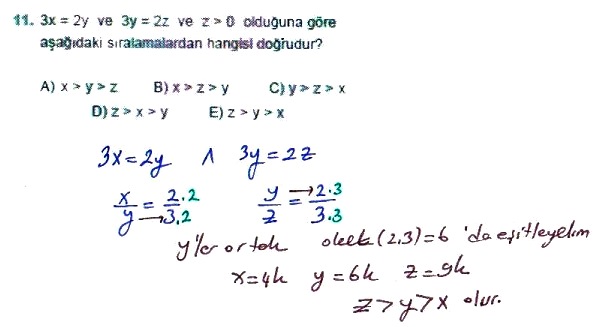 11. 3x = 2y ve 3y = 2z ve z > 0 olduğuna göre
aşağıdaki sıralamalardan hangisi doğrudur?
A) x > y > z B) x > z > y C) y > z > x
D) z > x > y E) z > y > x
3x = 2y ∧ 3y = 2z
x/y = 2.2/3.2 y/z = 2.3/3.3
y'ler ortak okek(2,3)=6 'da eşitleyelim
x=4k y=6k z=9k
z>y>x olur.